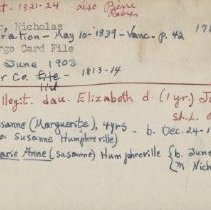 t - 1321-24 also Pierre
, Nicholas
ration - May 10 - 1839 - Vanc. - p. 42 17
rgo Card File
June 1903
r Co. list - 1813-14
llegit. dau. Elizabeth d. (1 yr) J
sanne (Marguerite), 4 yrs - b. Dec. 24 - 1
a Susanne Humphreville)
arie Anne (Susanne) Humphreville { b. June
(m Nich